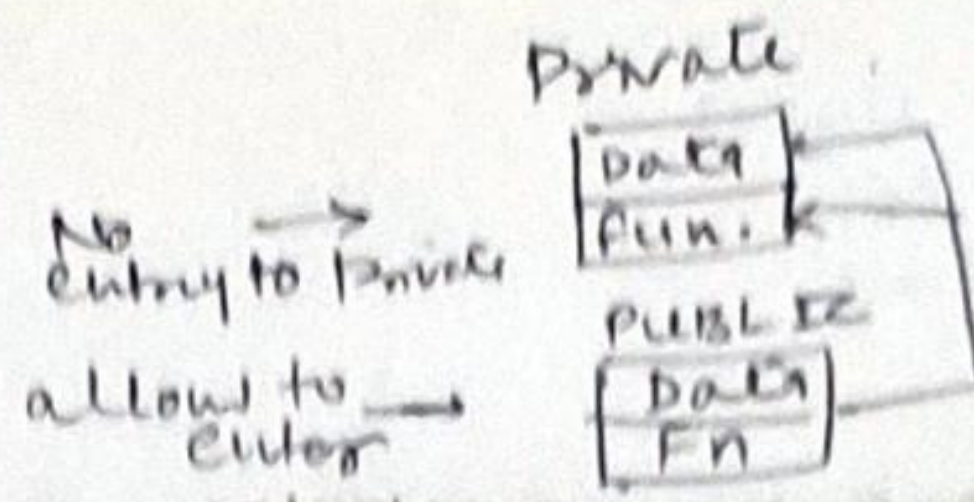 Private
Data
fun.
No
entry to Private
PUBLIC
allow to
enter
Data
Fn